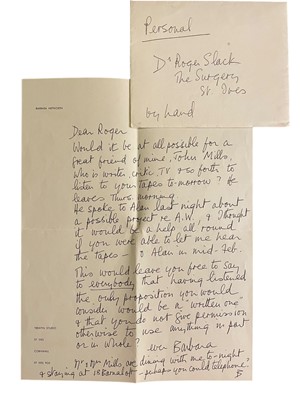 Personal
Dr Roger Slack
The Surgery
St. Ives
by hand
BARBARA HEPWORTH
Dear Roger
Would it be at all possible for a
great friend of mine, John Mills,
who is writer, critic, TV & so forth to
listen to your tapes to-morrow? He
leaves Thurs. morning
He spoke to Alan last night about
a possible project re A.W. & I thought
it would be a help all round
if you were able to let me hear
the tapes - & Alan in mid-Feb.
This would leave you free to say
to everybody that having listened
the only proposition you would
consider would be a "written one"
& that you do not give permission
otherwise to use anything in part
or in whole?
ever Barbara
Mr & Mrs Mills, are dining with me to-night
& staying at 18 Barnaloft - perhaps you could telephone.
B
TREWYN STUDIO
ST IVES
CORNWALL